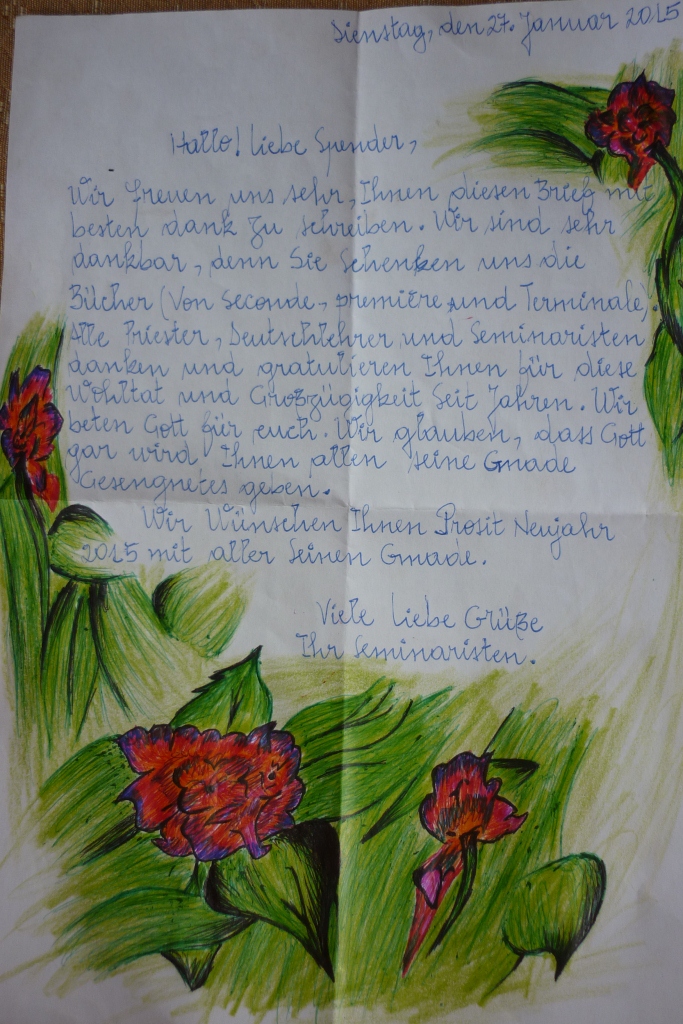 Dienstag, den 27. Januar 2015
Hallo! Liebe Spender,
Wir freuen uns sehr, Ihnen diesen Brief mit
besten dank zu schreiben. Wir sind sehr
dankbar, denn Sie schenken uns die
Bücher (Von Seconde, première und Terminale).
Alle Priester, Deutschlehrer und Seminaristen
danken und gratulieren Ihnen für diese
Wohltat und Großzügigkeit Seit Jahren. Wir
beten Gott für euch. Wir glauben, dass Gott
gar wird Ihnen allen seine Gnade
Gesengnetes geben.
Wir Wünschen Ihnen Prosit Neujahr
2015 mit aller Seinen Gnade.
Viele Liebe Grüße
Ihr Seminaristen.